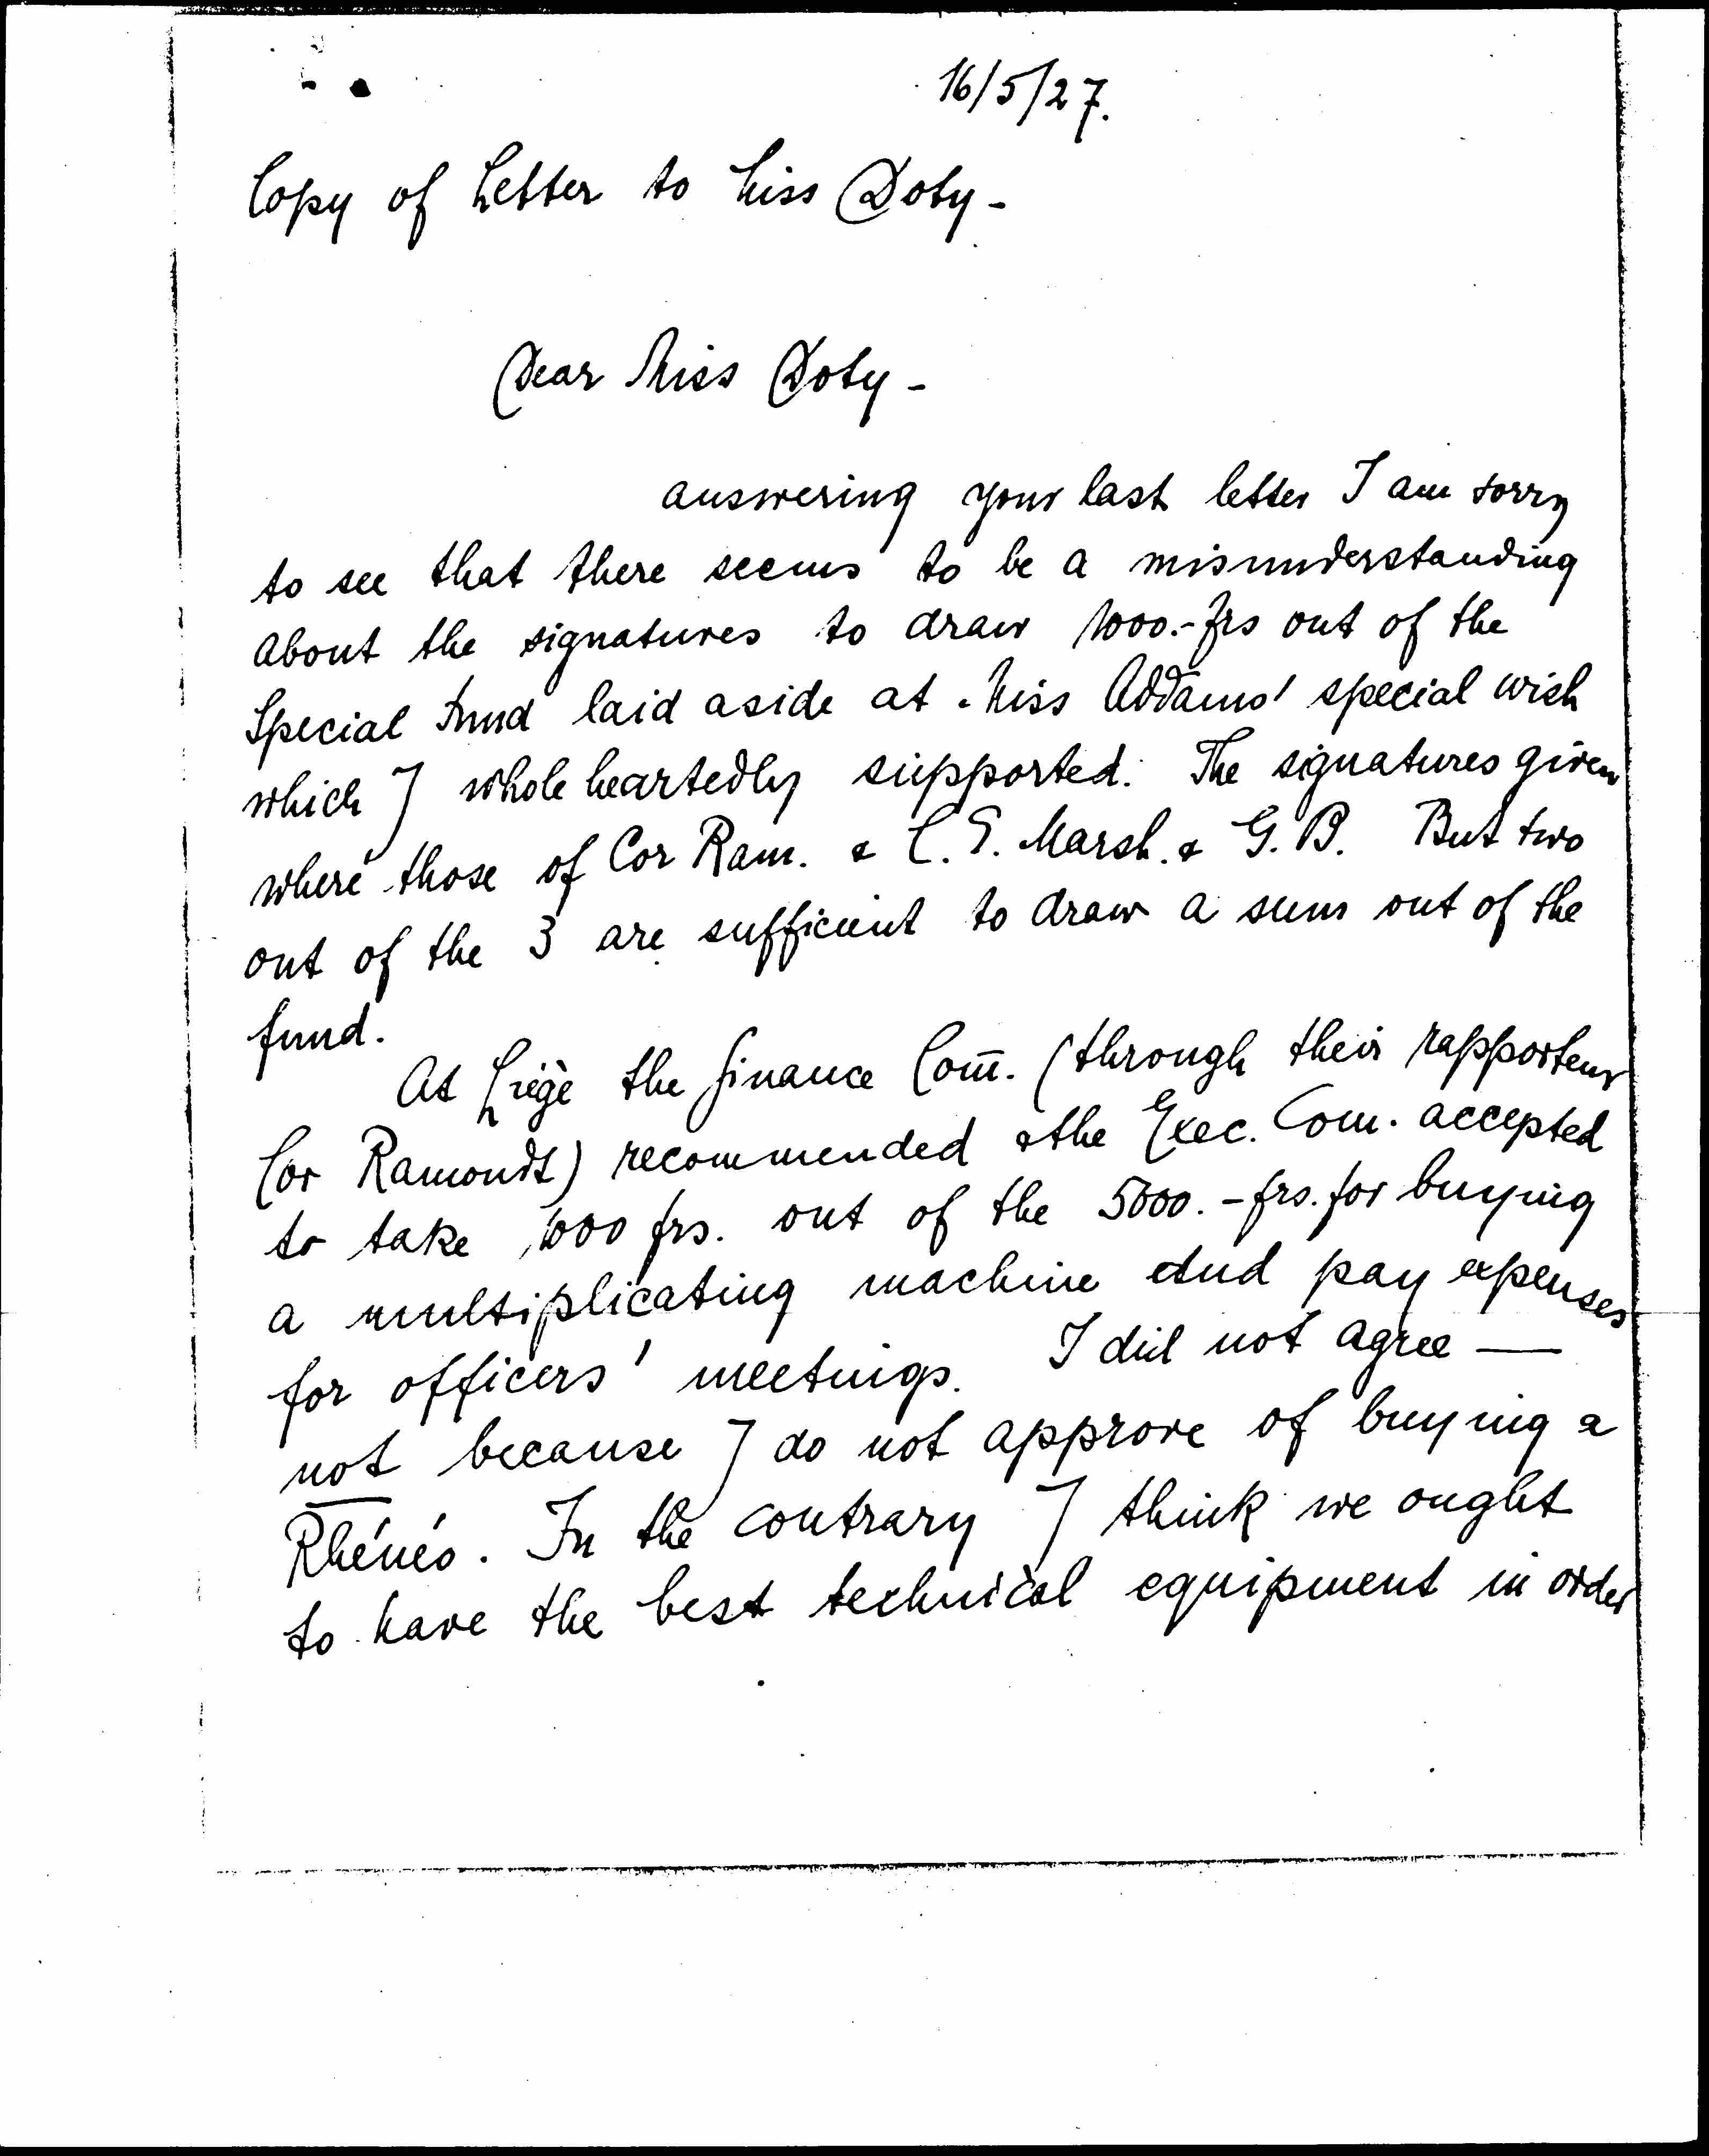 16/5/27.
Copy of Letter to Miss Doty -
Dear Miss Doty -
answering your last letter I am sorry
to see that there seems to be a misunderstanding
about the signatures to draw 1000.- frs out of the
Special Fund laid aside at Miss Addams' special wish
which I whole heartedly supported. The signatures given
where those of Cor Ram. & C. E. Marsh. & G. B. But two
out of the 3 are sufficient to draw a sum out of the
fund.
At Liège the finance Com̅. (through their rapporteur
Cor Ramondt) recommended & the Exec. Com. accepted
to take 1000 frs. out of the 5000.- frs. for buying
a multiplicating machine and pay expenses
for officers' meetings. I did not agree —
not because I do not approve of buying a
Rhénéo. In the contrary I think we ought
to have the best technical equipment in order